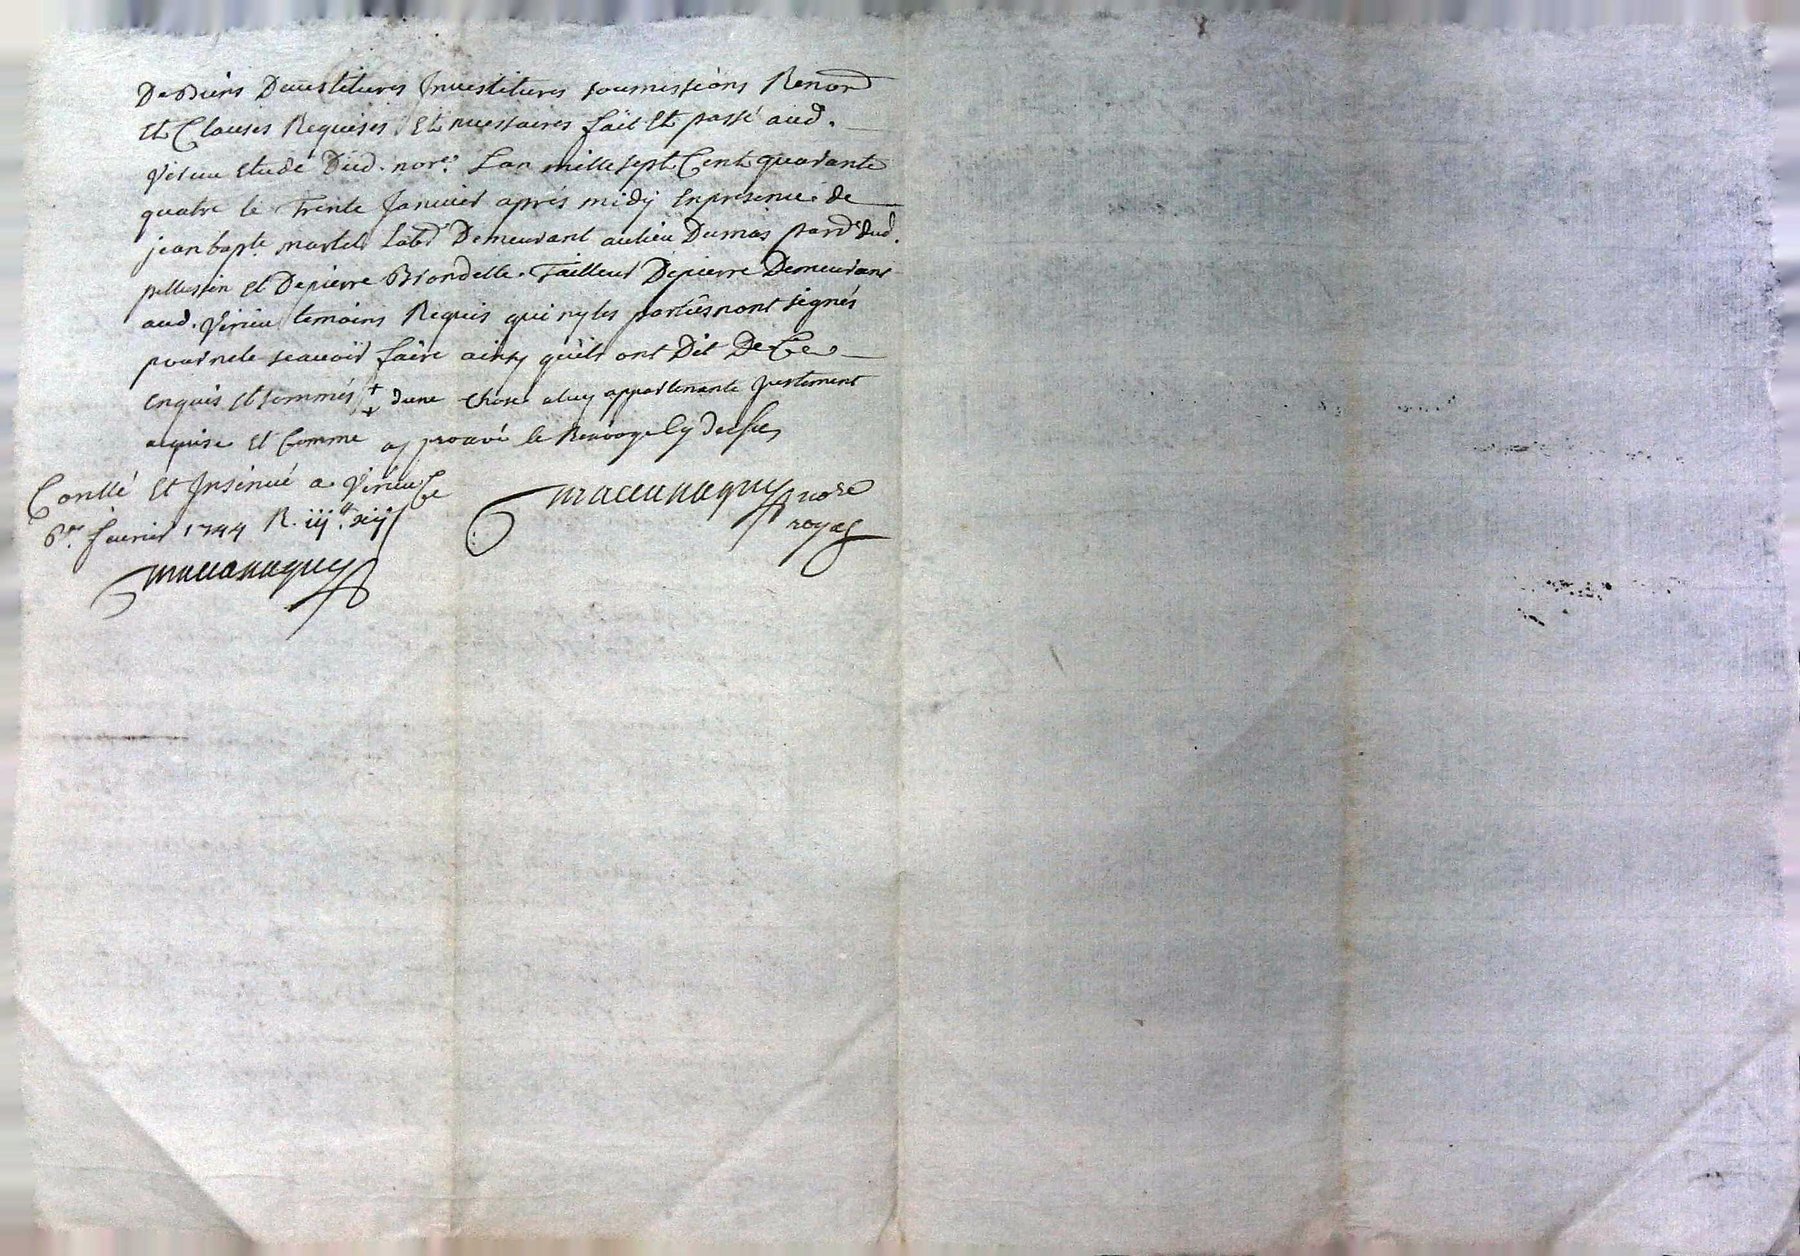 De Biens Devestitures Investitures soumissions Renon
Et Clauses Requises Et necessaires fait Et passé aud.
Virieu Etude Dud. nore. Lan mille sept Cent quarante
quatre le Trente Janvier aprés midy En presence de
jean bapte. martel Labr Demeurant au lieu Dumas parr dud.
pellussin et De pierre Blondelle. Tailleur De pierre Demeurant
aud. Virieu temoins Requis qui ny les parties nont signés
pour ne le scavoir faire ainsy quils ont Dit De Ce
Enquis Et sommés ++ dune chose a luy appartenante justement
aquise Et Comme approuvé le Renvoye Cy dessus
Conllé Et Insinué a Virieu Ce
6er. fevrier 1744 R. iij# xij s
nore
royal